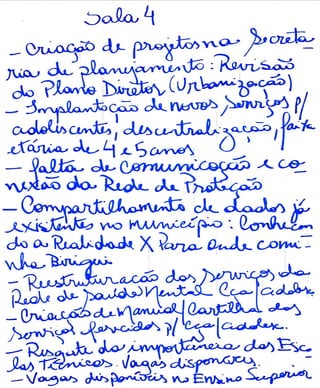 Sala 4
- Criação de projetos na Secreta-
ria de planejamento: Revisão
do Plano Diretor (Urbanização)
- Implantação de novos serviços p/
adolescentes, descentralização, faixa
etária de 4 e 5 anos
- falta de comunicação e co-
nexão da Rede de Proteção
- Compartilhamento de dados já
existentes no município: Conhecen
do a Realidade X Para Onde cami-
nha Birigui
- Reestruturacão dos serviços da
Rede de Saúde Mental Cça/adolesc.
- Criação de Manual/Cartilha dos
serviços p/ Cça/adolesc.
- Resgate da importância das Esco
las Técnicas. Vagas disponíveis.
- Vagas disponíveis no Ensino Superior